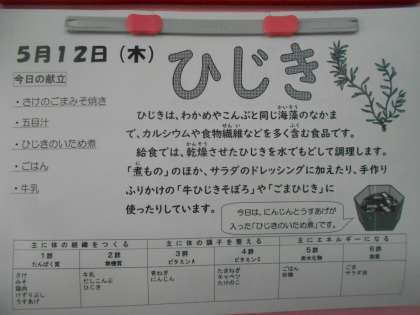 5月12日（木）
ひじき
今日の献立
・さけのごまみそ焼き
・五目汁
・ひじきのいため煮
・ごはん
・牛乳
ひじきは、わかめやこんぶと同じ海藻のなかま
で、カルシウムや食物繊維などを多く含む食品です。
給食では、乾燥させたひじきを水でもどして調理します。
「煮もの」のほか、サラダのドレッシングに加えたり、手作り
ふりかけの「牛ひじきそぼろ」や「ごまひじき」に
使ったりしています。
今日は、にんじんとうすあげが
入った「ひじきのいため煮」です。
主に体の組織をつくる 主に体の調子を整える 主にエネルギーになる
1群 2群 3群 4群 5群 6群
たんぱく質 無機質 ビタミンA ビタミンC 炭水化物 脂質
さけ 牛乳 青ねぎ たまねぎ ごはん ごま
みそ だしこんぶ にんじん キャベツ 砂糖 サラダ油
鶏肉 ひじき たけのこ
けずりぶし
うすあげ